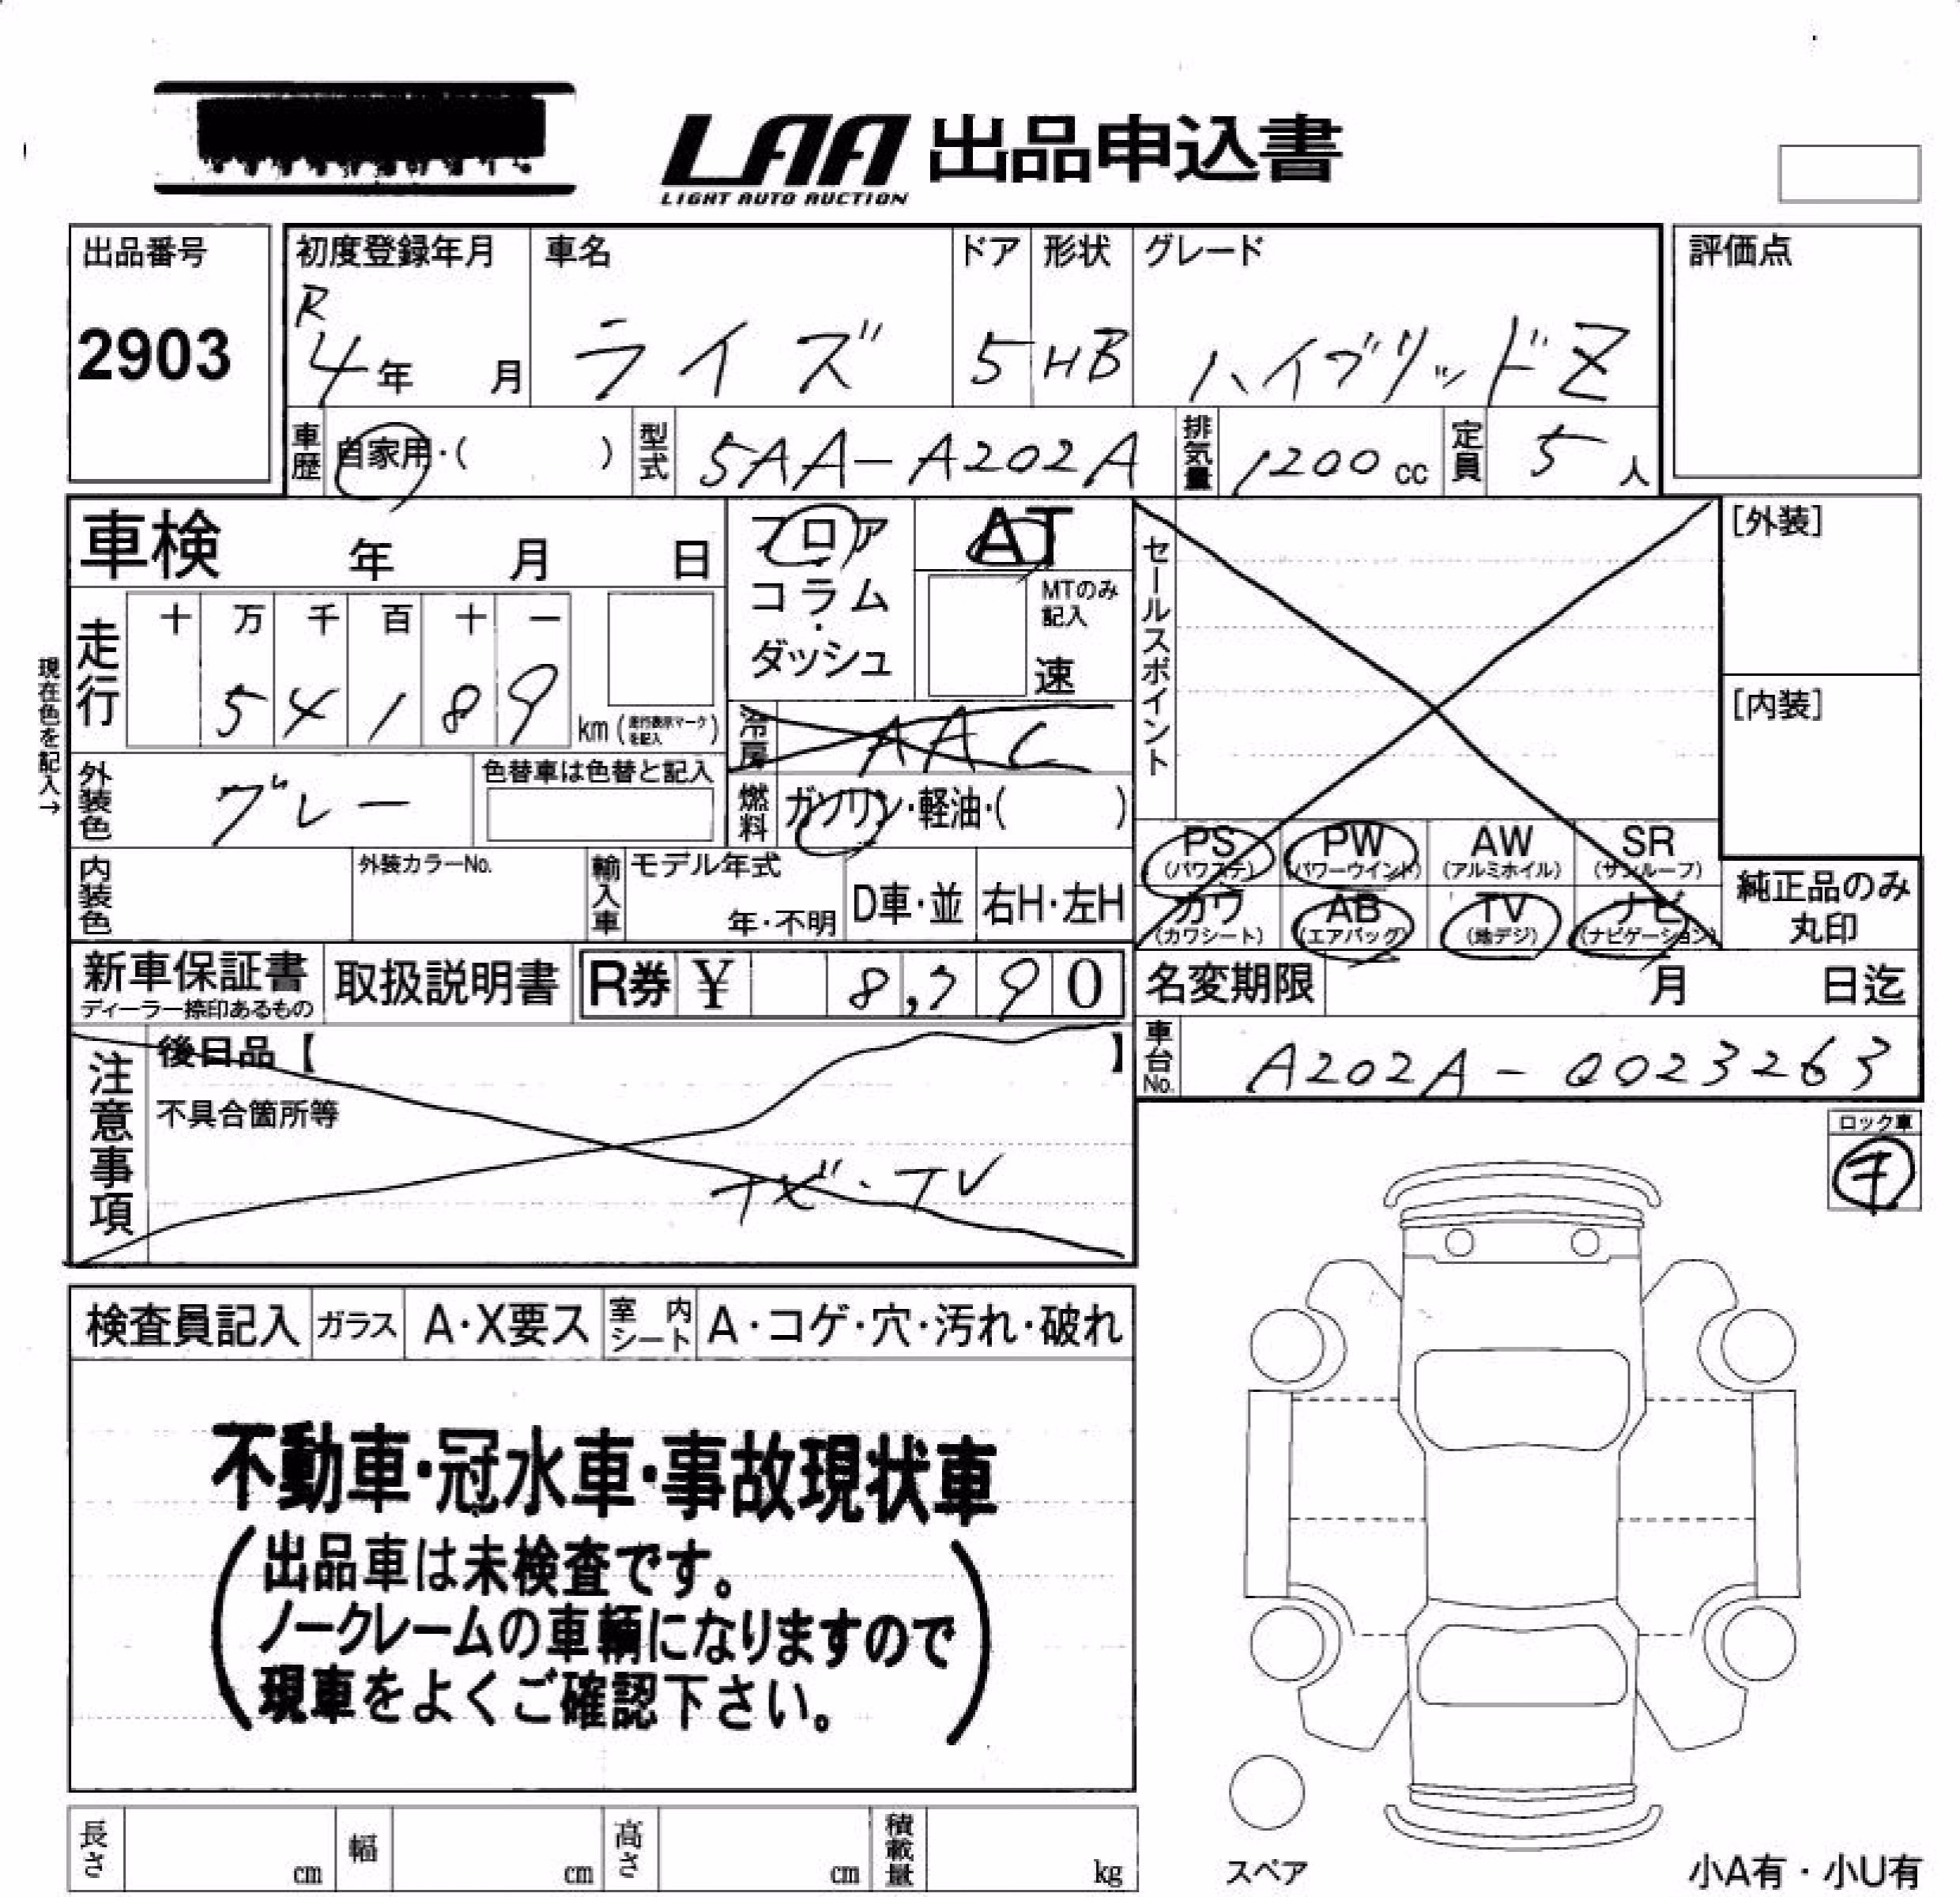 LAA 出品申込書
LIGHT AUTO AUCTION
出品番号 初度登録年月 車名 ドア 形状 グレード 評価点
2903 R4年 月 ライズ 5 HB ハイブリッドZ
車歴 自家用・( ) 型式 5AA-A202A 排気量 1200cc 定員 5人
車検 年 月 日 フロア AT セールスポイント [外装]
コラム・ MTのみ記入
ダッシュ 速
走行 十 万 千 百 十 一
5 4 1 8 9 km (走行表示マークを記入) [内装]
現在色を記入→
冷房 AAC
外装色 グレー 色替車は色替と記入 燃料 ガソリン・軽油・( )
PS (パワステ) PW (パワーウインド) AW (アルミホイル) SR (サンルーフ)
カワ (カワシート) AB (エアバッグ) TV (地デジ) ナビ (ナビゲーション)
純正品のみ
丸印
内装色 外装カラーNo. 輸入車 モデル年式 年・不明 D車・並 右H・左H
新車保証書 取扱説明書 R券 ¥ 8,790 名変期限 月 日迄
ディーラー捺印あるもの
車台No. A202A-0023263
注意事項 後日品【 】
不具合箇所等
ナビ・TV
ロック車
キ
検査員記入 ガラス A・X要ス 室内シート A・コゲ・穴・汚れ・破れ
不動車・冠水車・事故現状車
(出品車は未検査です。
ノークレームの車輌になりますので
現車をよくご確認下さい。)
長さ cm 幅 cm 高さ cm 積載量 kg
スペア 小A有・小U有